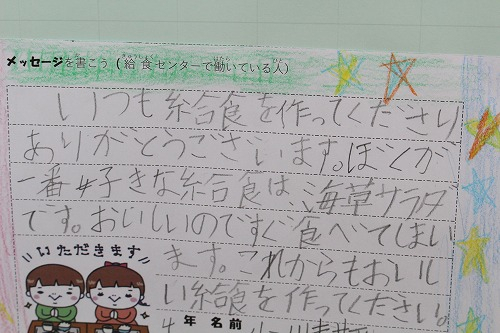 メッセージを書こう（給食センターで働いている人）
いつも給食を作ってくださり
ありがとうございます。ぼくが
一番好きな給食は、海草サラダ
です。おいしいのですぐ食べてしまい
ます。これからもおいし
い給食を作ってください。
いただきます
年 名前